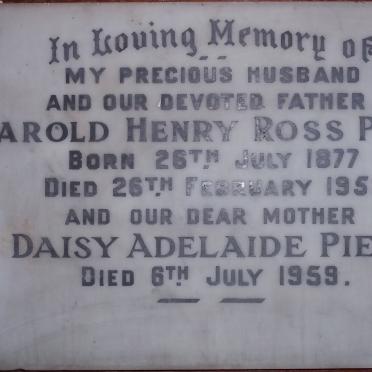 In Loving Memory of
MY PRECIOUS HUSBAND
AND OUR DEVOTED FATHER
AROLD HENRY ROSS P
BORN 26TH JULY 1877
DIED 26TH FEBRUARY 195
AND OUR DEAR MOTHER
DAISY ADELAIDE PIE
DIED 6TH JULY 1959.